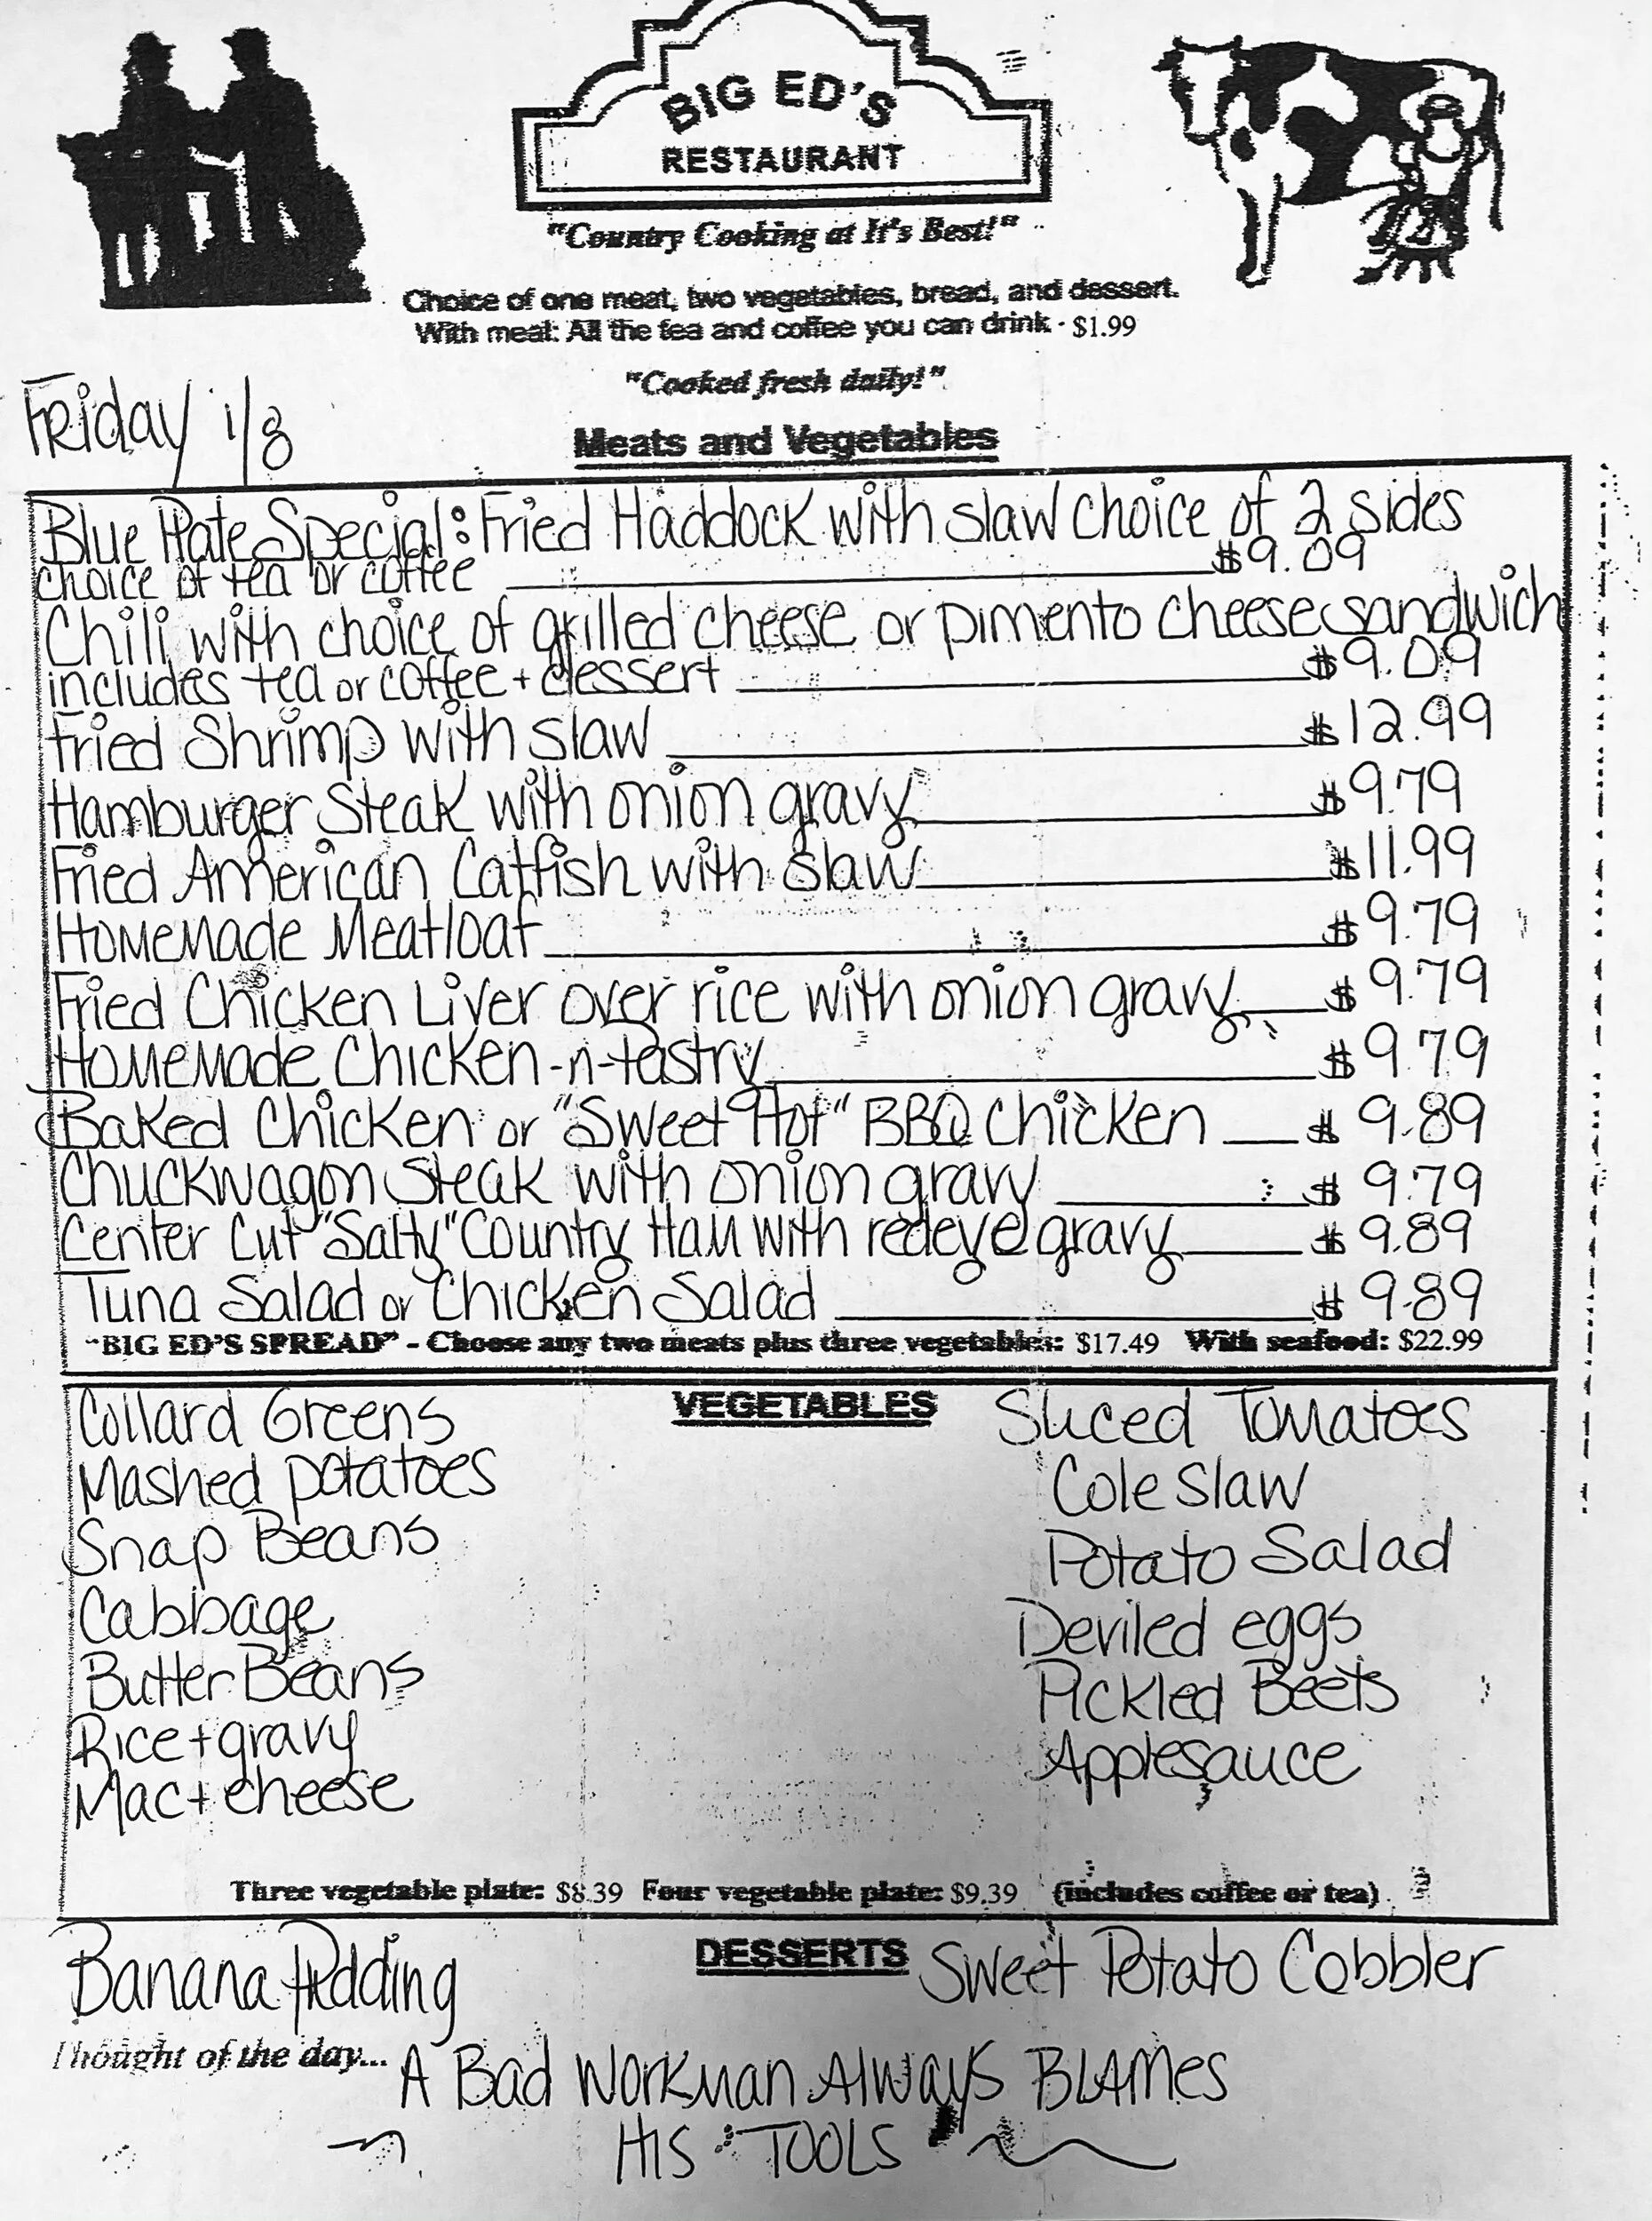 BIG ED'S
RESTAURANT
"Country Cooking at It's Best!"
Choice of one meat, two vegetables, bread, and dessert.
With meal: All the tea and coffee you can drink - $1.99
"Cooked fresh daily!"
Friday 1/8
Meats and Vegetables
Blue Plate Special: Fried Haddock with slaw choice of 2 sides
choice of tea or coffee $9.09
Chili with choice of grilled cheese or pimento cheese sandwich
includes tea or coffee + dessert $9.09
Fried Shrimp with slaw $12.99
Hamburger Steak with onion gravy $9.79
Fried American Catfish with slaw $11.99
Homemade Meatloaf $9.79
Fried Chicken Liver over rice with onion gravy $9.79
Homemade Chicken-n-Pastry $9.79
Baked Chicken or "Sweet Hot" BBQ Chicken $9.89
Chuckwagon Steak with onion gravy $9.79
Center Cut "Salty" Country Ham with redeye gravy $9.89
Tuna Salad or Chicken Salad $9.89
"BIG ED'S SPREAD" - Choose any two meats plus three vegetables: $17.49 With seafood: $22.99
VEGETABLES
Collard Greens Sliced Tomatoes
Mashed potatoes Cole Slaw
Snap Beans Potato Salad
Cabbage Deviled eggs
Butter Beans Pickled Beets
Rice + gravy Applesauce
Mac + cheese
Three vegetable plate: $8.39 Four vegetable plate: $9.39 (includes coffee or tea)
DESSERTS
Banana Pudding Sweet Potato Cobbler
Thought of the day... A Bad Workman Always BLAMes
HIS TOOLS